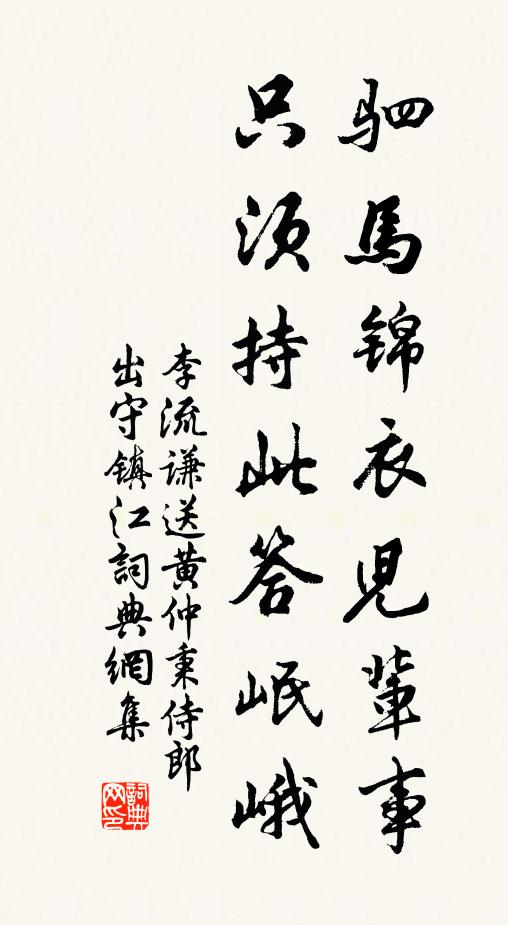 驷馬锦衣児輩事
只须持此答岷峨
李流谦送黄仲秉侍郎
出守镇江詞典網集
詞典网印